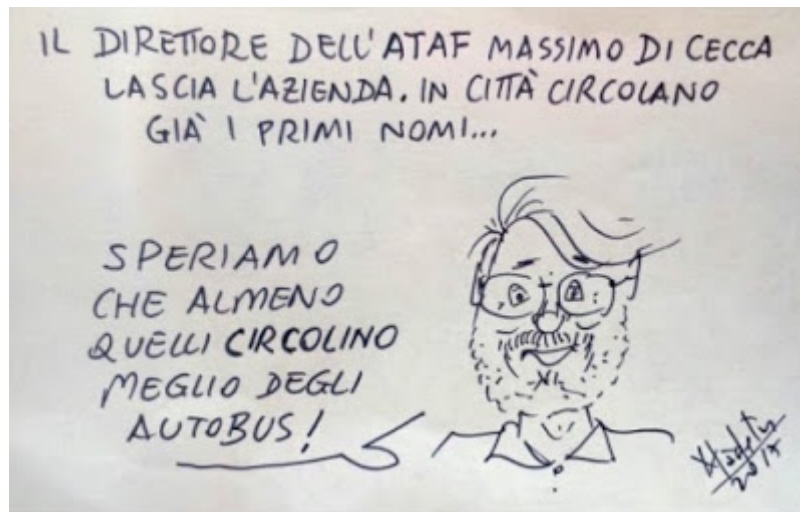 IL DIRETTORE DELL'ATAF MASSIMO DI CECCA
LASCIA L'AZIENDA. IN CITTÀ CIRCOLANO
GIÀ I PRIMI NOMI...
SPERIAMO
CHE ALMENO
QUELLI CIRCOLINO
MEGLIO DEGLI
AUTOBUS!